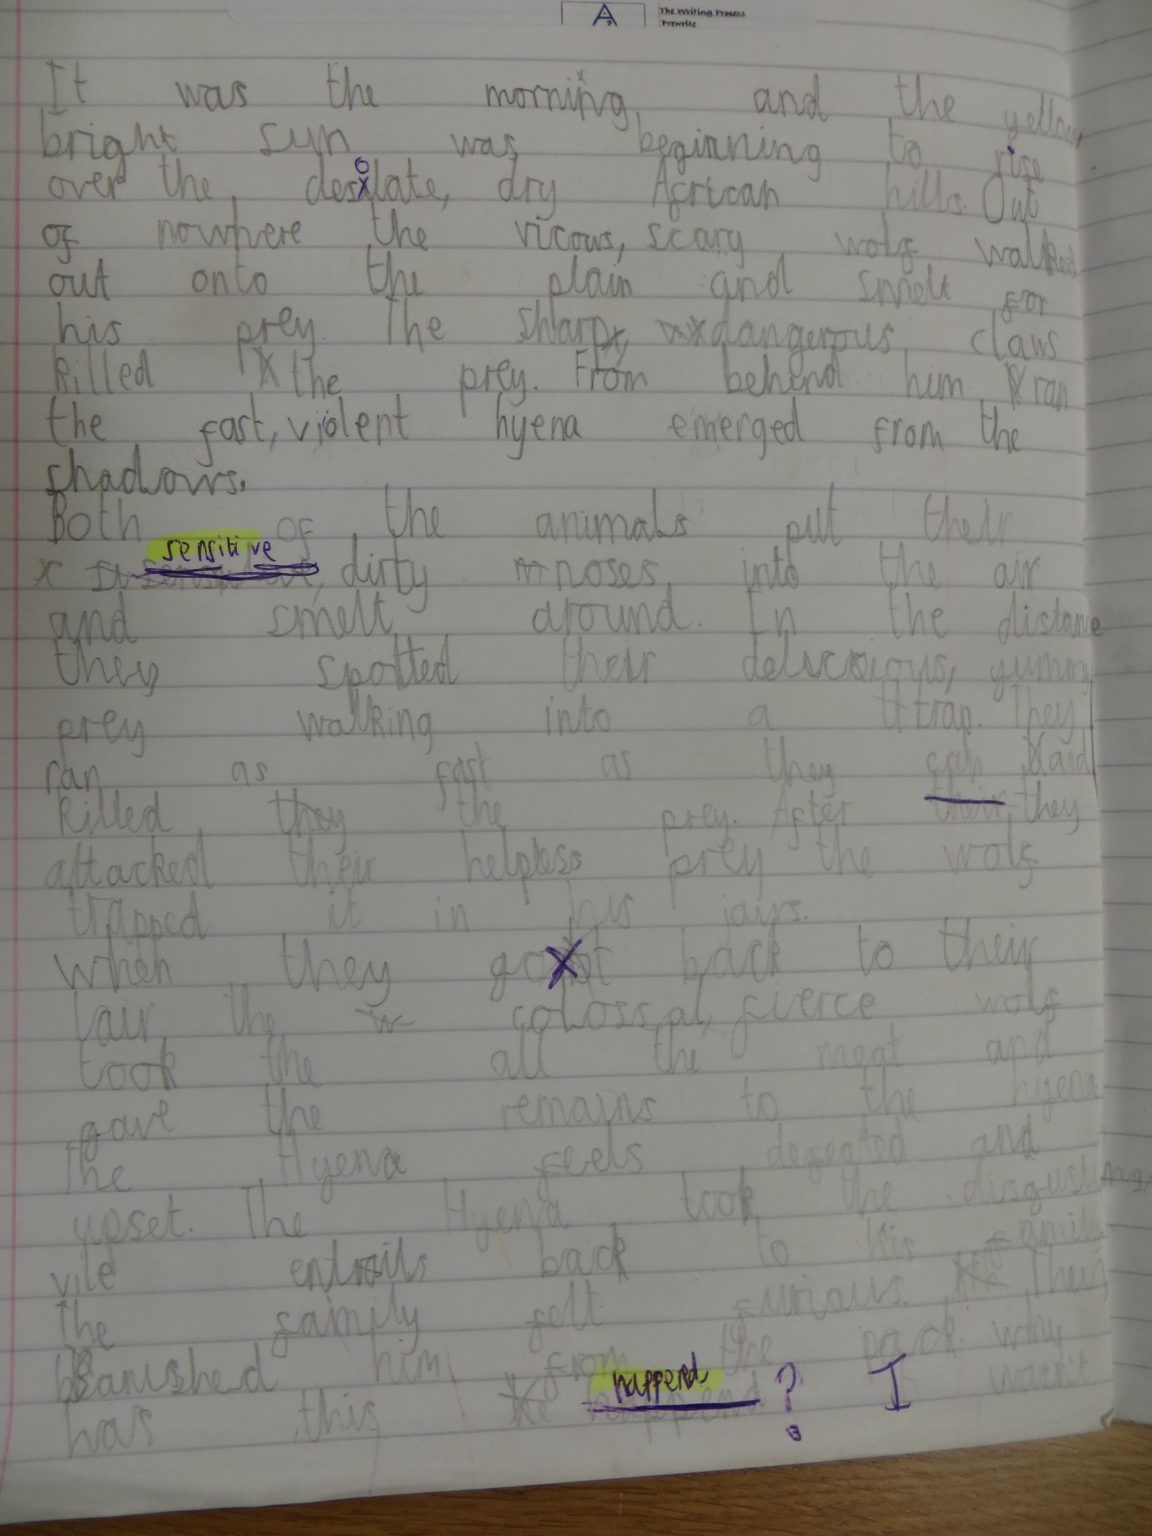 The Writing Process
Prewrite
It was the morning, and the yellow,
bright sun was beginning to rise
over the desolate, dry African hills. Out
of nowhere the vicous, scary wolf walked
out onto the plain and smelt for
his prey. The sharp, dangerous claws
killed the prey. From behend him ran
the fast, violent hyena emerged from the
shadows.
Both of the animals put their
sensitive dirty noses into the air
and smelt around. In the distance
they spotted their yummy
prey walking into a trap. They
ran as fast as they can and
killed they the prey. After their they
attacked their helpless prey the wolf
trapped it in his jaws.
When they got back to their
lair, the colossal, fierce wolf
took the all the meat and
gave the remains to the hyena
The Hyena feels defeated and
upset. The Hyena took the disgusting,
vile entrails back to his family
The family felt furious They
banushed him from the pack. why
has this happend? I wasn't